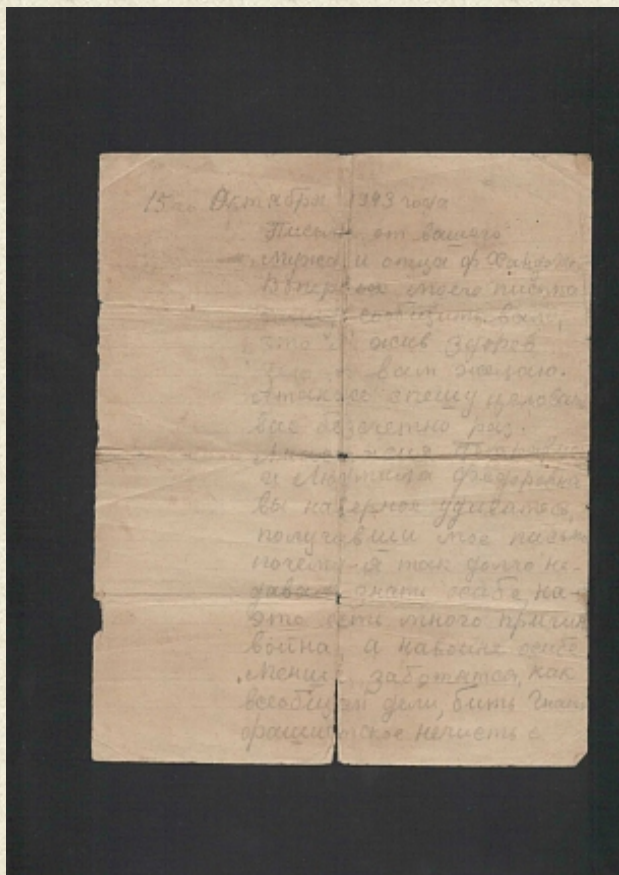 15го Октября 1943 года
Письмо от вашего
мужа и отца ф.
Впервая моего письма
сообщить вам,
что я жив здоров
вам желаю.
Атакось спешу целовать
вас безчетно раз.
и Людмила Федоровна
вы наверное удивитесь,
получивши мое письмо
почему-я так долго не-
давал знать осабе, на-
это есть много причин
война, а навойне осебе
меньше заботятся, как
всеобщем дели, бить
фашиское нечисть с